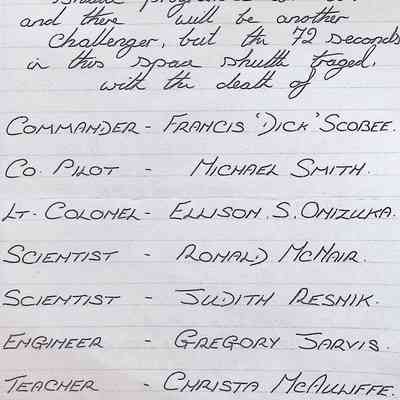 and there will be another
Challenger, but the 72 seconds
in this space shuttle traged,
with the death of
COMMANDER - FRANCIS 'DICK' SCOBEE.
CO. PILOT - MICHAEL SMITH.
LT. COLONEL - ELLISON. S. ONIZUKA.
SCIENTIST - RONALD MCNAIR.
SCIENTIST - JUDITH RESNIK.
ENGINEER - GREGORY JARVIS.
TEACHER - CHRISTA MCAULIFFE.